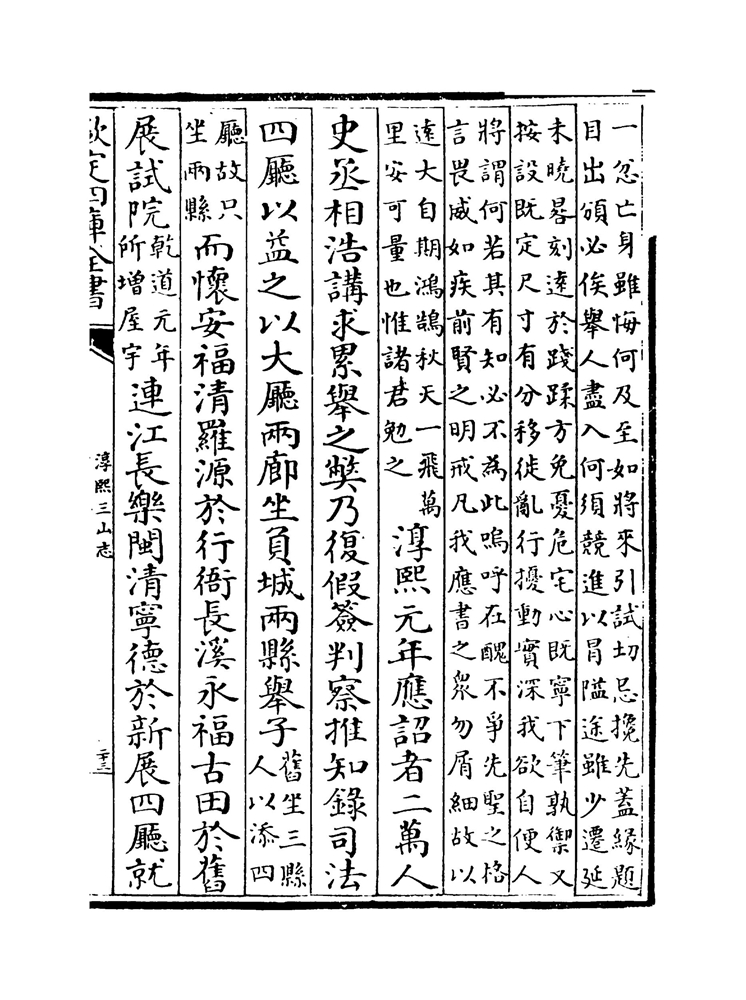 一忿亡身雖悔何及至如將來引試切忌攙先蓋緣題
目出頒必俟舉人盡入何須競進以冐隘途雖少遷延
未曉晷刻遠於踐蹂方免憂危宅心既寧下筆孰禦又
按設既定尺寸有分移徙亂行擾動實深我欲自便人
將謂何若其有知必不為此嗚呼在醜不爭先聖之格
言畏威如疾前賢之明戒凡我應書之衆勿屑細故以
遠大自期鴻鵠秋天一飛萬
里安可量也惟諸君勉之
淳熙元年應詔者二萬人
史丞相浩講求累舉之獘乃復假簽判察推知錄司法
四廳以益之以大廳兩廊坐負城兩縣舉子
舊坐三縣
人以添四
廳故只
坐兩縣
而懷安福清羅源於行衙長溪永福古田於舊
展試院
乾道元年
所增屋宇
連江長樂閩清寧德於新展四廳就
欽定四庫全書
淳熙三山志
二十三